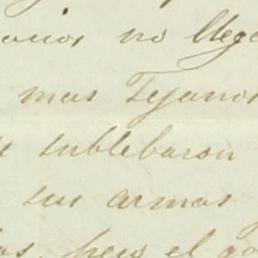 no llega
mas Tejanos
sublebaron
sus armas
pero el go